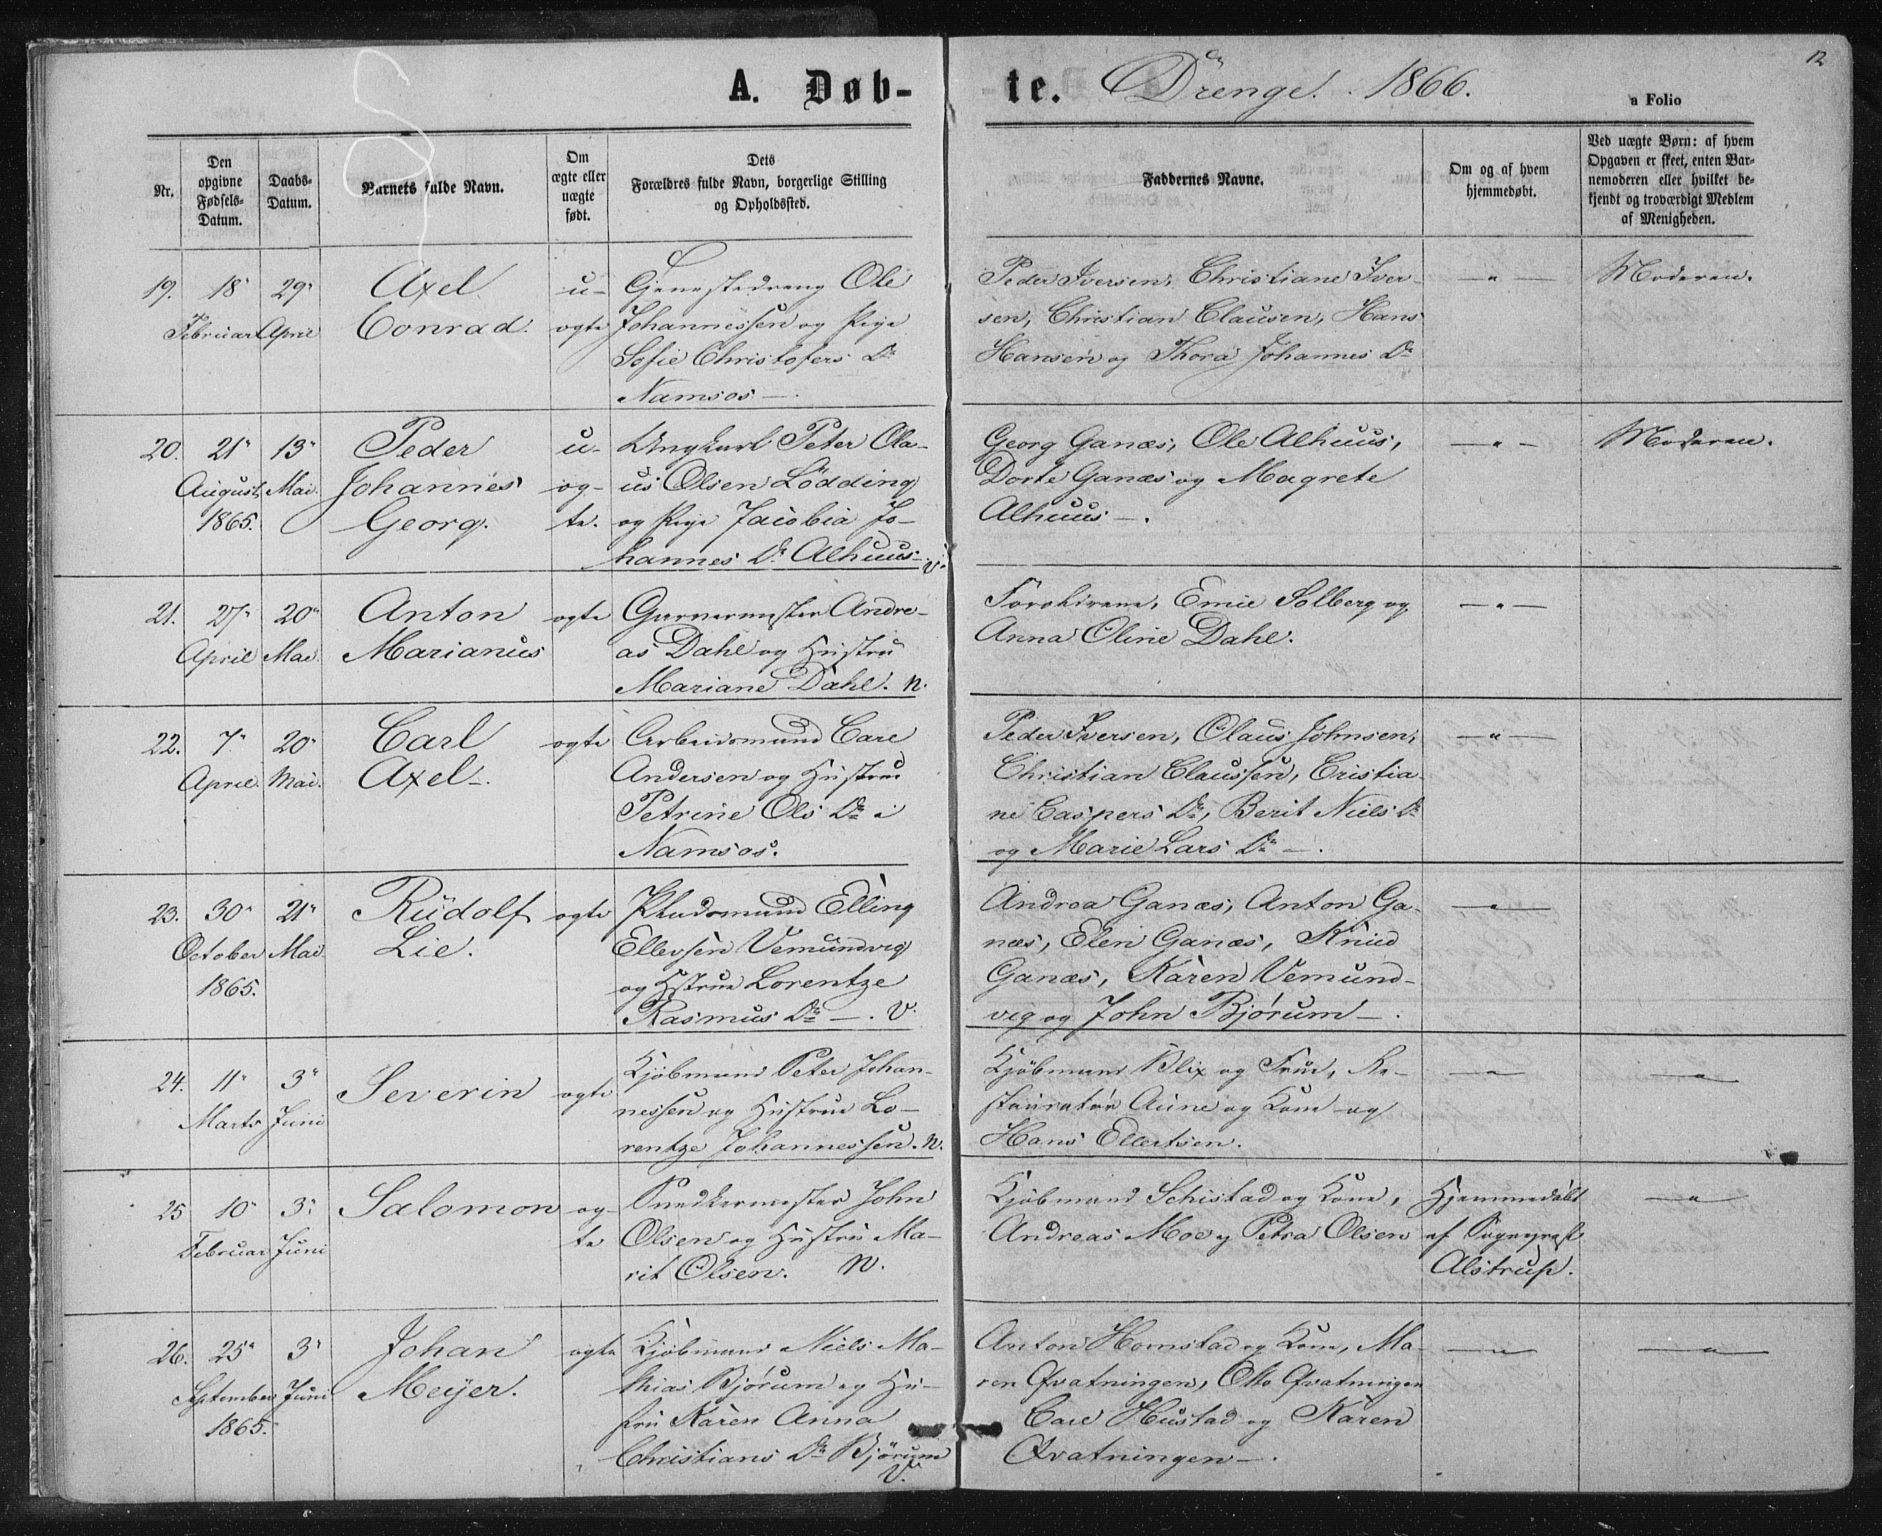 A. Døb-
te. Drenge. 1866.
12
a Folio
Nr.
Den
opgivne
Fødsels-
Datum.
Daabs-
Datum.
Barnets fulde Navn.
Om
ægte eller
uægte
født.
Dets
Forældres fulde Navn, borgerlige Stilling
og Opholdssted.
Faddernes Navne.
Om og af hvem
hjemmedøbt.
Ved uægte Børn: af hvem
Opgaven er skeet, enten Bar-
nemoderen eller hvilket be-
kjendt og troværdigt Medlem
af Menigheden.
19.
18
Februar
29
April
Axel
Conrad.
u-
ægte
Tjenestedreng Ole
Johannessen og Pige
Sofie Christofers Dr
Namsos —.
Peder Iversen, Christiane Iver-
sen, Christian Clausen, Hans
Hansen og Thora Johannes Dr
— " —
Moderen.
20.
21
August
1865.
13
Mai
Peder
Johannes
Georg.
u-
æg-
te.
Ungkarl Peter Ola-
us Olsen Lödding
og Pige Jacobia Jo-
hannes Dr Alhuus —. V.
Georg Ganæs, Ole Alhuus,
Dorte Ganæs og Magrete
Alhuus —.
— " —
Moderen.
21.
27
April
20
Mai
Anton
Marianus
ægte
Garvermester Andre-
as Dahl og Hustru
Mariane Dahl. N.
Emil Solberg og
Anna Oline Dahl.
— " —
22.
7
April.
20
Mai.
Carl
Axel —.
ægte
Arbeidsmand Carl
Andersen og Hustru
Petrine Ols Dr i
Namsos.
Peder Iversen, Olaus Johnsen,
Christian Claussen, Cristia-
ne Caspers Dr, Berit Niels Dr
og Marie Lars Dr —.
— " —
23.
30
October
1865.
21
Mai
Rudolf
Lie.
ægte
Pladsmand Elling
Ellevsen Vemundvig
og Hstrue Lorentze
Rasmus Dr —. V.
Andrea Ganæs, Anton Ga-
næs, Elen Ganæs, Knud
Ganæs, Karen Vemund-
vig og John Bjørum —.
— " —
24.
11
Marts
3
Juni
Severin
ægte
Kjøbmand Peter Johan-
nessen og Hustrue Lo-
rentze Johannessen. N.
Kjøbmand Blix og Frue, Re-
stauratør Aune og Kone og
Hans Ellertsen.
— " —
— " —
25
10
Februar
3
Juni
Salomon
æg-
te
Snedkermester John
Olsen og Hustru Ma-
rit Olsen. N.
Kjøbmand Schistad og Kone,
Andreas Moe og Petra Olsen
Hjemmedøbt
af Sognepræst
Alstrup.
— " —
26.
25
September
1865.
3
Juni
Johan
Meijer.
ægte
Kjöbmand Niels Ma-
thias Bjørum og Hu-
stru Karen Anna
Christians Dr Bjørum
V.
Anton Homstad og Kone, Ma-
ren Qvatningen, Otto Qvatningen
Carl Hustad og Karen
Qvatningen —.
— " —
— " —